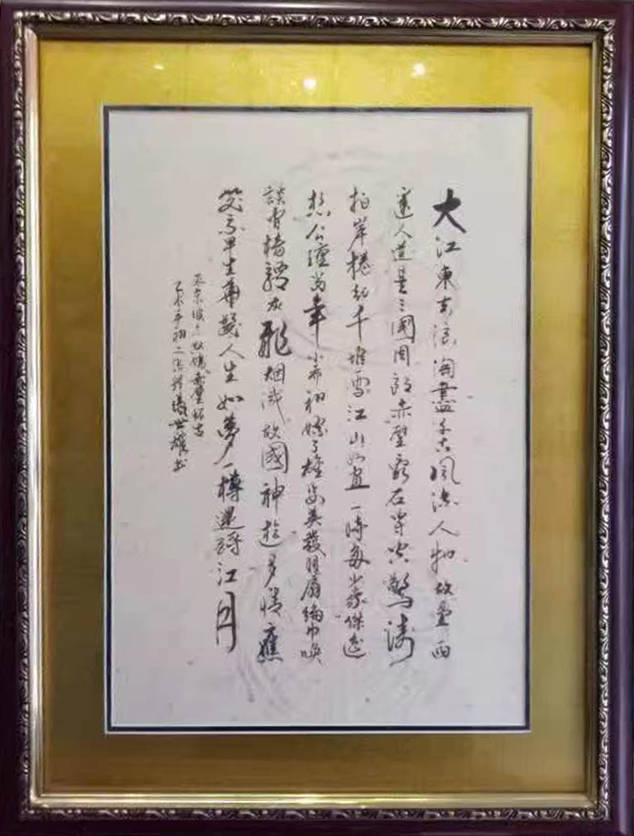 大江東去浪淘盡千古風流人物故壘西
邊人道是三國周郎赤壁亂石穿空驚濤
拍岸捲起千堆雪江山如畫一時多少豪傑遙
想公瑾當年小喬初嫁了雄姿英發羽扇綸巾咲
談間檣艣灰飛烟滅故國神遊多情應
笑我早生華髮人生如夢一樽還酹江月
東坡念奴嬌赤壁怀古
乙未年初世雄书